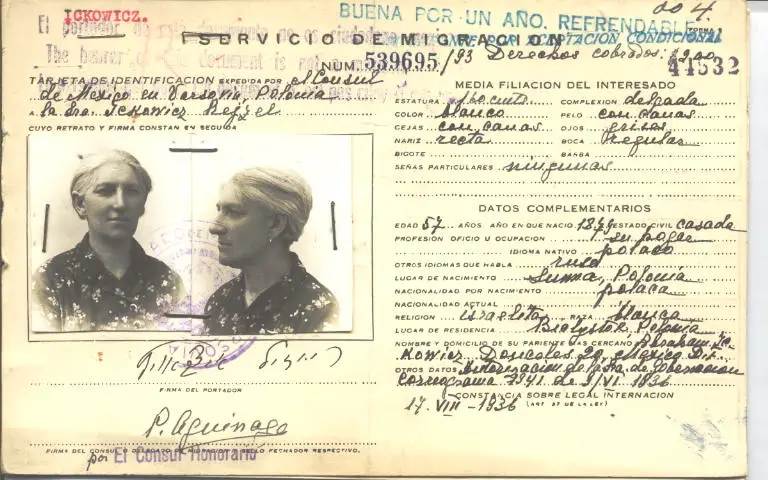 ICKOWICZ.
El portador de este documento no es ciudadano
The bearer of this document is not
BUENA POR UN AÑO. REFRENDABLE
ACEPTACION CONDICIONAL
SERVICIO DE MIGRACION
NUM. 539695/93 Derechos cobrados:
44532
TARJETA DE IDENTIFICACION EXPEDIDA POR el Consul
de Mexico en Varsovia, Polonia
A la Sra. Ickowicz Rejzel
CUYO RETRATO Y FIRMA CONSTAN EN SEGUIDA
MEDIA FILIACION DEL INTERESADO
ESTATURA COMPLEXION delgada
COLOR blanco PELO con canas
CEJAS con canas OJOS grises
NARIZ recta BOCA Regular
BIGOTE BARBA
SEÑAS PARTICULARES ningunas
DATOS COMPLEMENTARIOS
EDAD 57 AÑOS AÑO EN QUE NACIO ESTADO CIVIL casada
PROFESION OFICIO U OCUPACION su hogar
IDIOMA NATIVO polaco
OTROS IDIOMAS QUE HABLA ruso
LUGAR DE NACIMIENTO Polonia
NACIONALIDAD POR NACIMIENTO polaca
NACIONALIDAD ACTUAL
RELIGION israelita RAZA blanca
LUGAR DE RESIDENCIA Bialystok Polonia
NOMBRE Y DOMICILIO DE SU PARIENTE MAS CERCANO Abraham Ic-
kowicz Donceles 20, Mexico D.F.
OTROS DATOS Autorizacion de la Sra de Gobernacion
3941 de 9/VI 1936
CONSTANCIA SOBRE LEGAL INTERNACION
17. VIII - 1936 (ART 57 DE LA LEY)
FIRMA DEL PORTADOR
P. Aguinaga
FIRMA DEL CONSUL O DELEGADO DE MIGRACION Y SELLO FECHADOR RESPECTIVO.
por El Consul Honorario